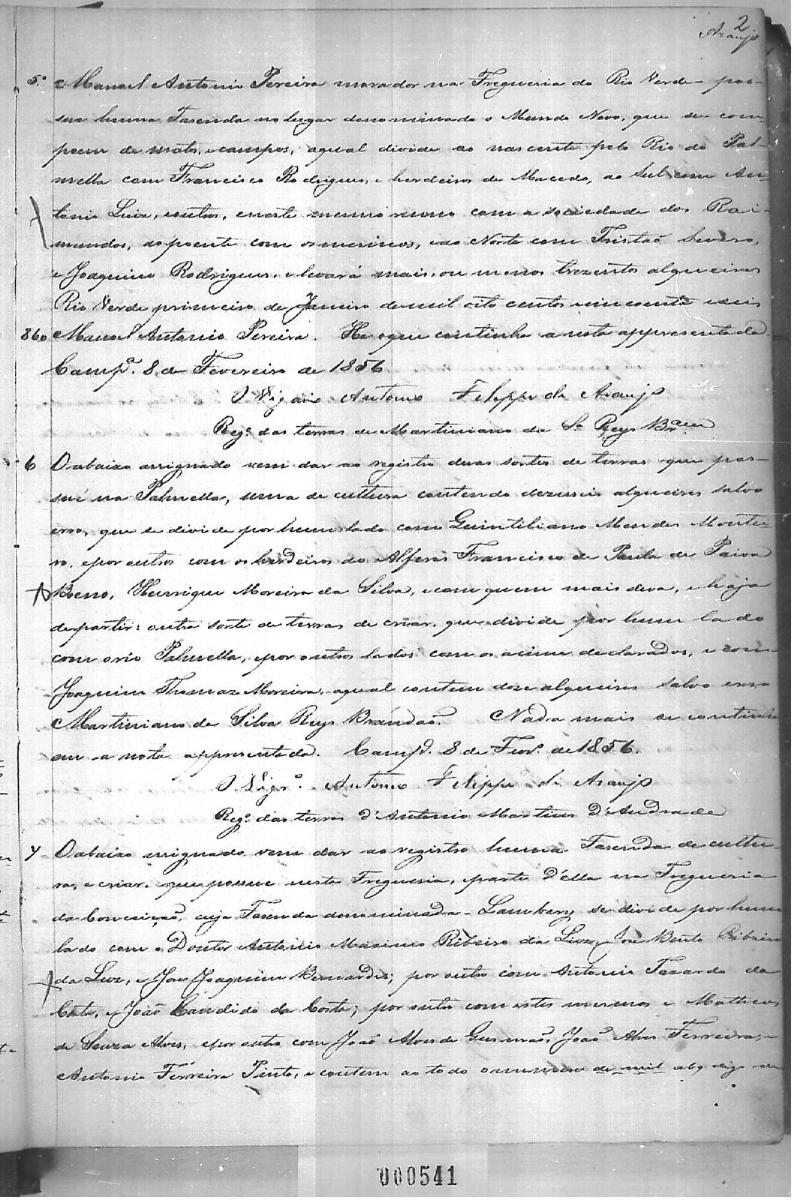 2
Araujo
5º Manoel Antonio Pereira morador na Freguesia do Rio Verde - pos-
sue huma Fasenda no lugar denominado o Mundo Novo, que se com
poem de matos, e campos, aqual divide ao nascente pelo Rio do Pal-
mella com Francisco Rodrigues, e herdeiros de Macedo, ao Sul com An-
tonio Luiz, e outros, e neste mesmo rumo com a sociedade dos Rai-
mundos, ao poente com os mesmos, e ao Norte com Tristaõ Severo,
e Joaquim Rodrigues, e levará mais, ou menos trezentos alqueires
Rio Verde primeiro de Janeiro de mil oito centos e cincoenta e seis
860 Manoel Antonio Pereira. He o que continha a nota appresentada
Campª. 8 de Fevereiro de 1856
O Vigario Antonio Felippe de Araujo
Regº. das terras de Martiniano da Sª Reys Brªm
6 O abaixo assignado vem dar ao registro duas sortes de terras que pos-
sue na Palmella, uma de cultura contendo dezesseis alqueires salvo
erro, que se divide por hum lado com Quintiliano Mendes Montei
ro, e por outro com os herdeiros do Alferes Francisco de Paula de Paiva
Bueno, Henrique Moreira da Silva, e com quem mais deva, e haja
de partir: outra sorte de terras de criar, que divide por hum lado
com o rio Palmella, e por outros lados com os acima declarados, e com
Joaquim Thomaz Moreira, aqual contem doze alqueires salvo erro
Martiniano da Silva Reys Brandaõ. Nada mais se continha
em a nota appresentada. Campª. 8 de Fevº. de 1856.
O Vigrº. Antonio Felippe de Araujo
Regº. das terras d'Antonio Martins d'Andrade
7 O abaixo assignado vem dar ao registro huma Fasenda de cultu-
ra, e criar, que possue nesta Freguesia, e parte d'ella na Freguesia
da Conceiçaõ, cuja Fasenda denominada - Lambary se divide por hum
lado com o Doutor Antonio Maximo Ribeiro da Luz, José Bento Ribeiro
da Luz, e José Joaquim Bernardes; por outro com Antonio da
Costa, e João Candido da Costa; por outro com estes mesmos e Matheus
de Souza Alves, e por outro com Joaõ Alves de Gusmaõ, Joaõ Alves Ferreira, e
Antonio Ferreira Pinto, e contem ao todo o numero de mil alq. digo de
000541